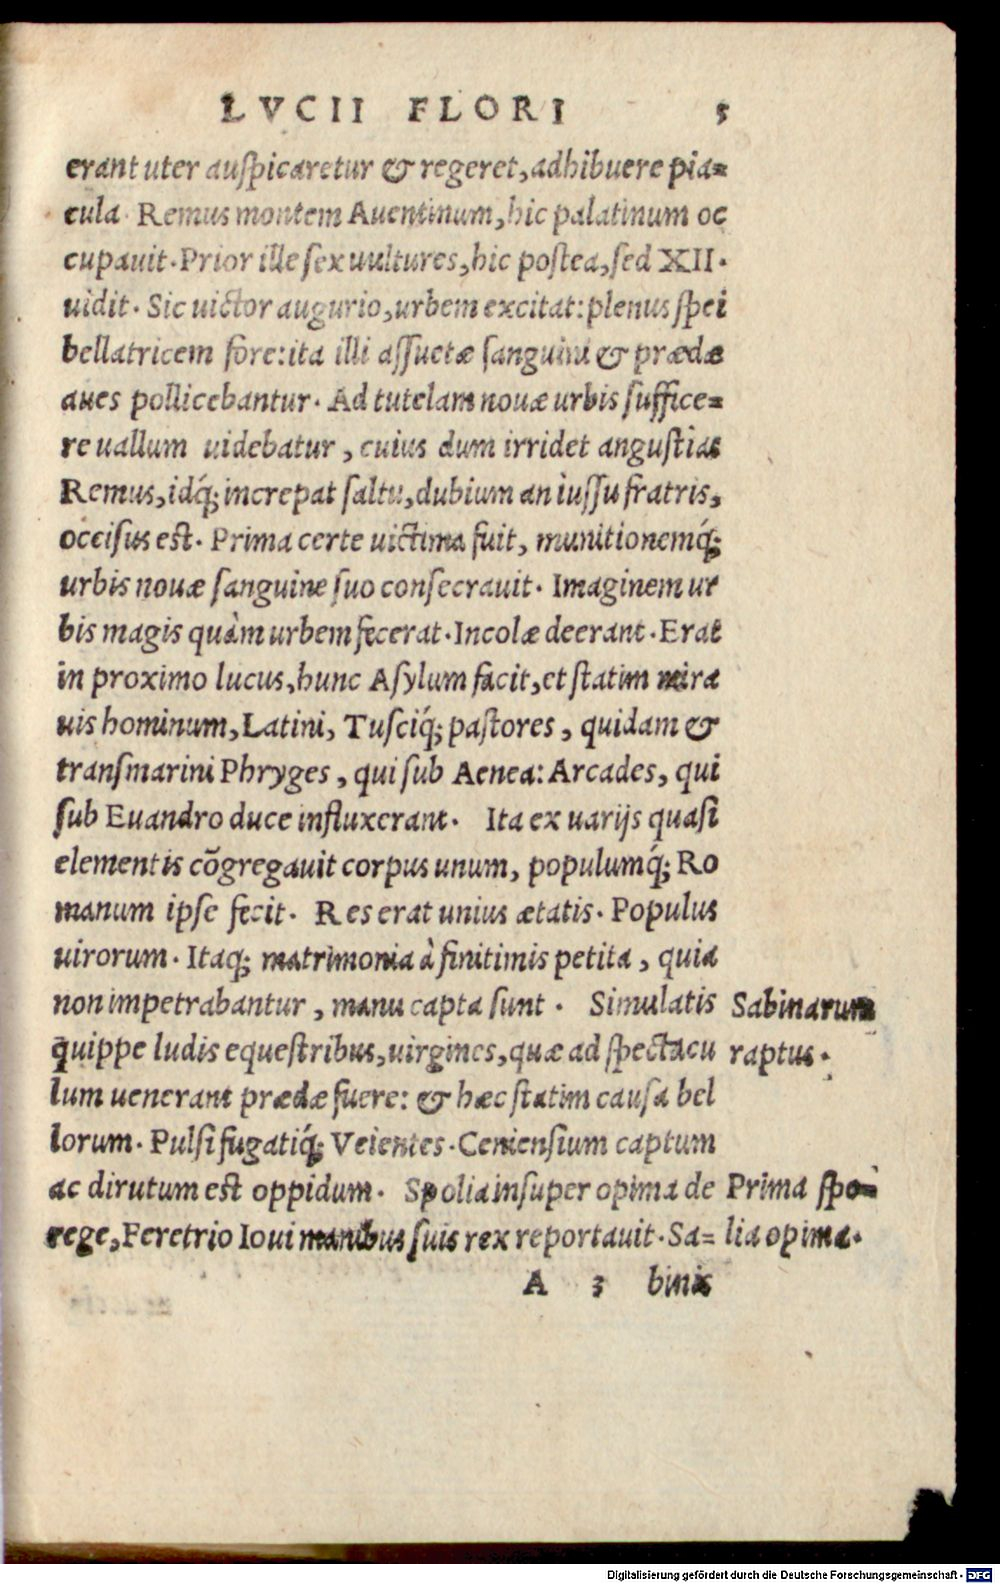 LVCII FLORI 5
erant uter auſpicaretur & regeret, adhibuere pia=
cula. Remus montem Auentinum, hic palatinum oc
cupauit. Prior ille ſex uultures, hic poſtea, ſed XII.
uidit. Sic uictor augurio, urbem excitat: plenus ſpei
bellatricem fore: ita illi aſſuetæ ſanguini & prædæ
aues pollicebantur. Ad tutelam nouæ urbis ſuffice=
re uallum uidebatur, cuius dum irridet anguſtias
Remus, idq́; increpat ſaltu, dubium an iuſſu fratris,
occiſus eſt. Prima certe uictima fuit, munitionemq́;
urbis nouæ ſanguine ſuo conſecrauit. Imaginem ur
bis magis quàm urbem fecerat. Incolæ deerant. Erat
in proximo lucus, hunc Aſylum facit, et ſtatim mira
uis hominum, Latini, Tuſciq́; paſtores, quidam &
tranſmarini Phryges, qui ſub Aenea: Arcades, qui
ſub Euandro duce influxerant. Ita ex uarijs quaſi
elementis cõgregauit corpus unum, populumq́; Ro
manum ipſe fecit. Res erat unius ætatis. Populus
uirorum. Itaq; matrimonia à finitimis petita, quia
non impetrabantur, manu capta ſunt. Simulatis
Sabinarum
quippe ludis equeſtribus, uirgines, quæ ad ſpectacu
raptus.
lum uenerant prædæ fuere: & hæc ſtatim cauſa bel
lorum. Pulſi fugatiq́; Veientes. Cenienſium captum
ac dirutum eſt oppidum. Spolia inſuper opima de
Prima ſpo=
rege, Feretrio Ioui manibus ſuis rex reportauit. Sa=
lia opima.
A 3 binis
Digitalisierung gefördert durch die Deutsche Forschungsgemeinschaft - DFG